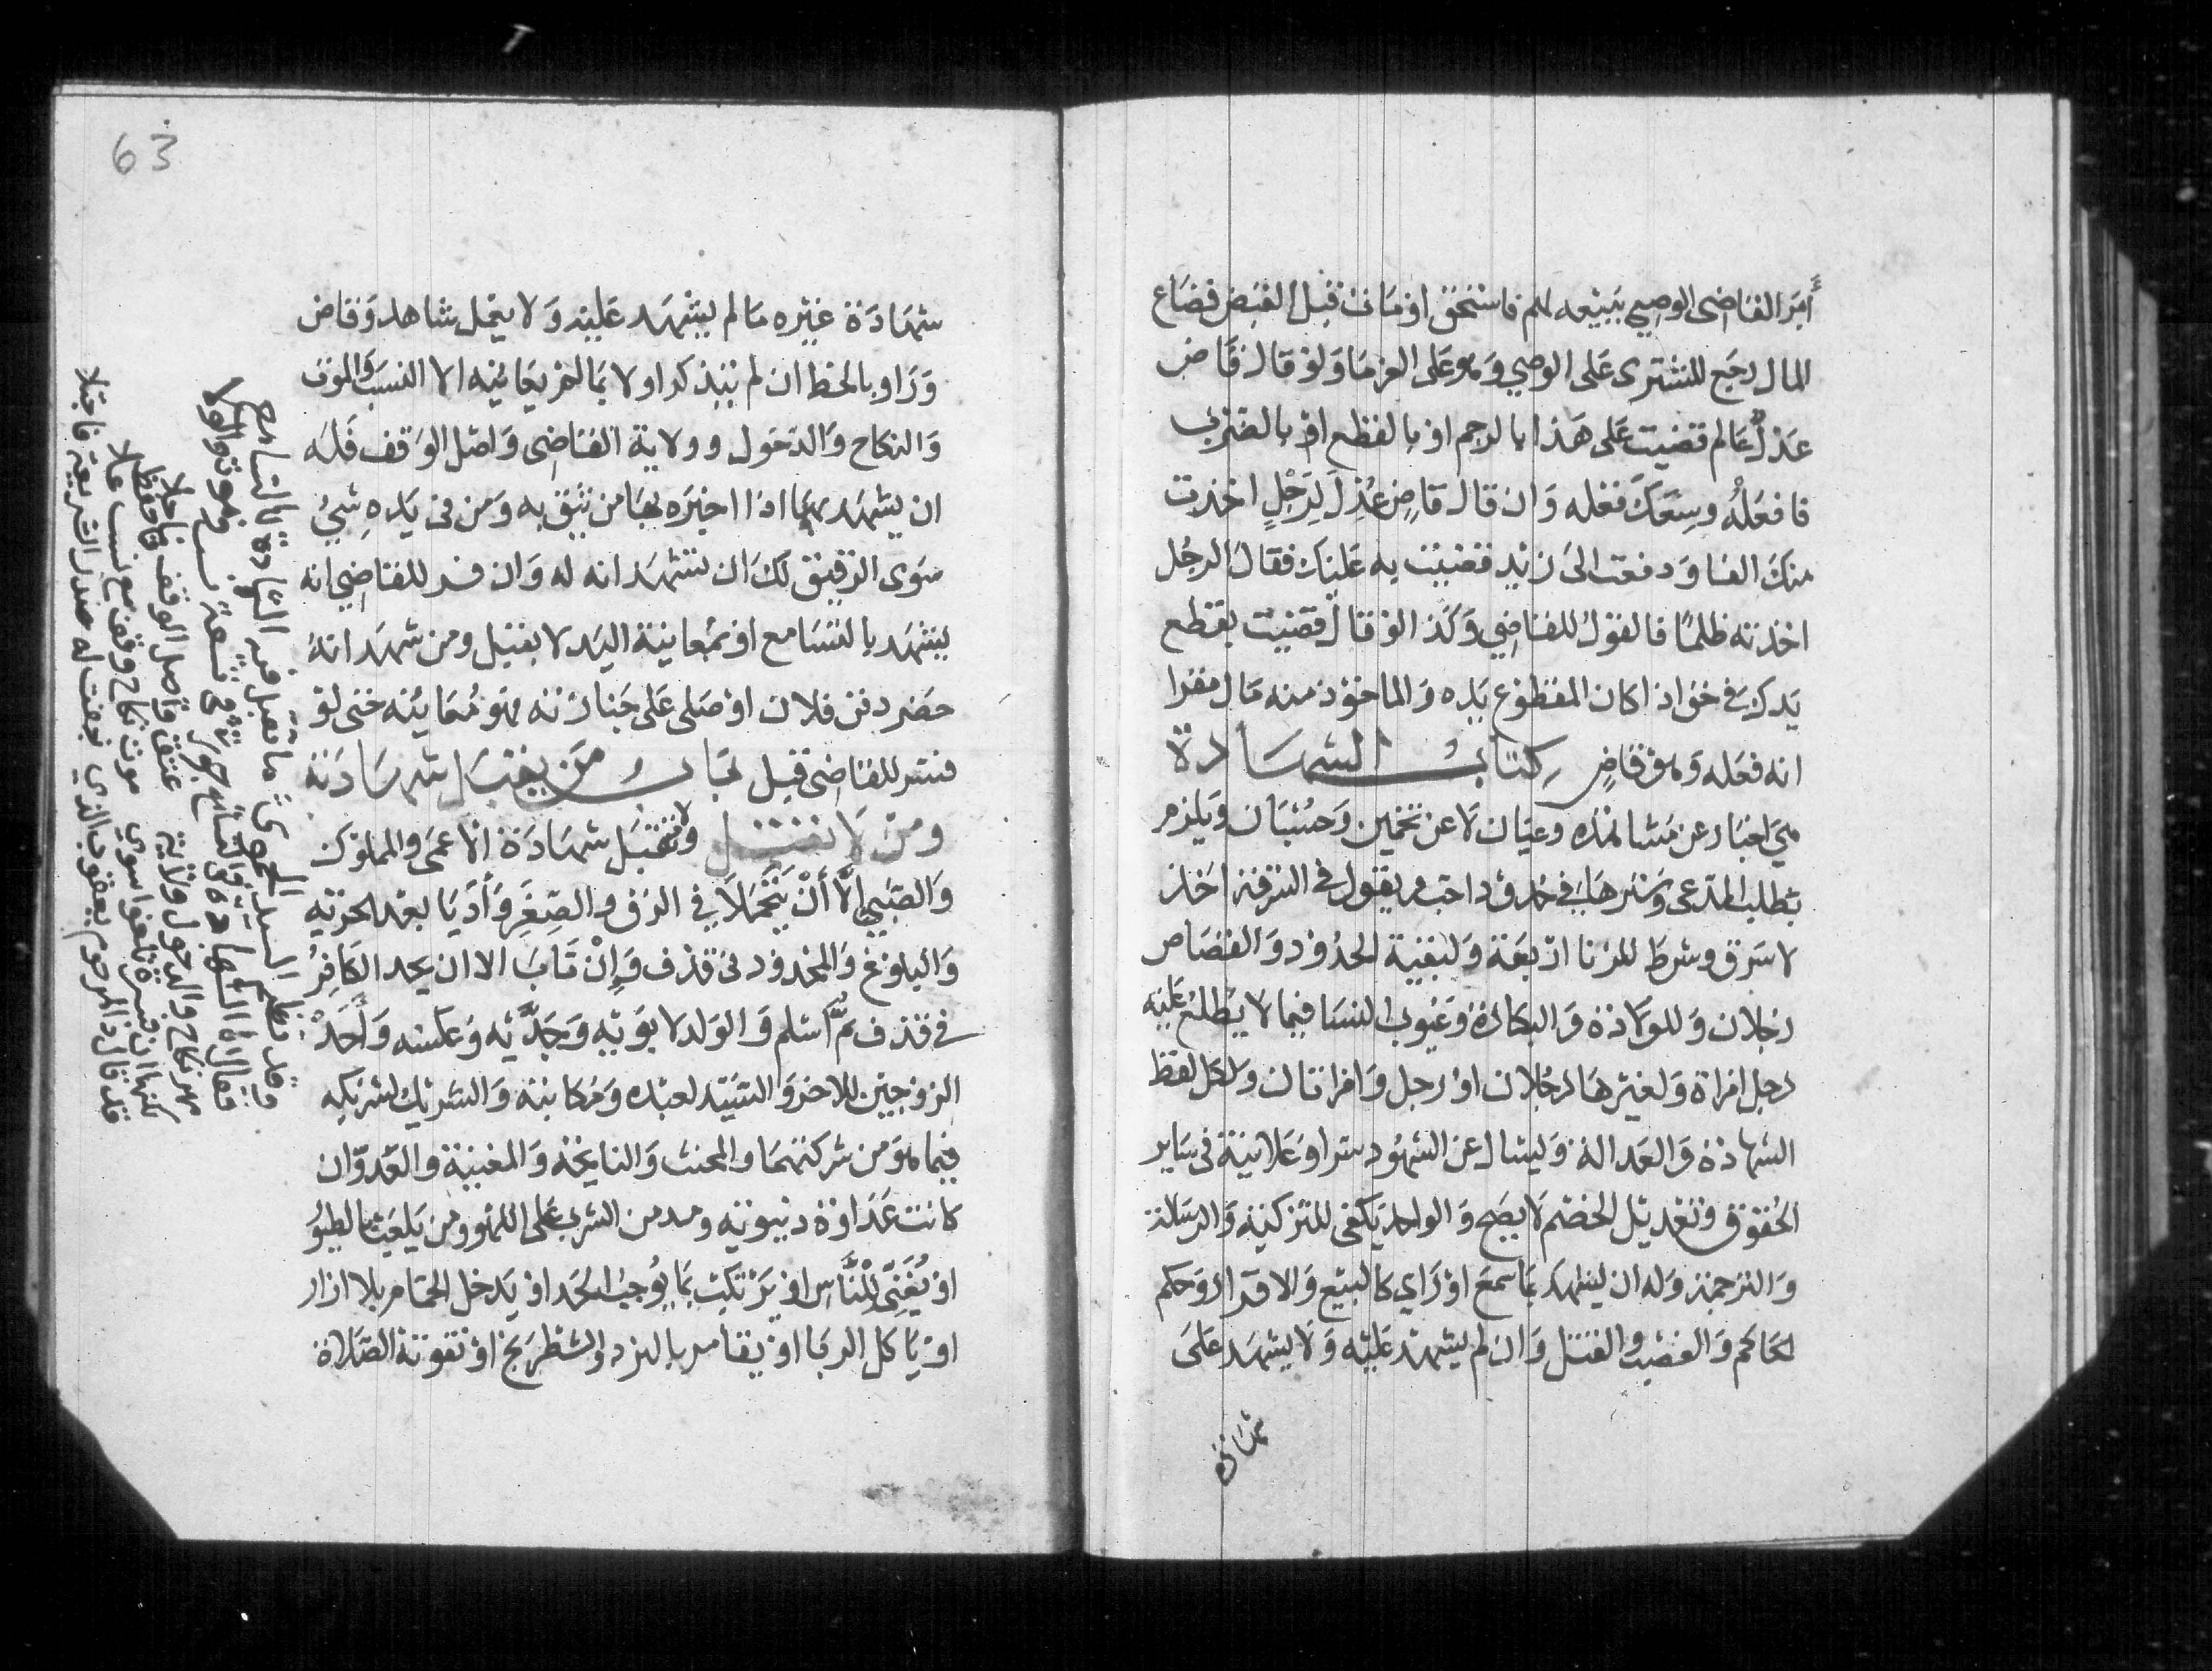 أمر القاضي الوصي ببيعه لهم فاستحق او مات قبل القبض فضاع
المال رجع المشتري على الوصي وهو على الغرما ولو قال قاض
عدل عالم قضيت على هذا بالرجم او بالقطع او بالضرب
فافعله وسعك فعله وان قال قاض عزل لرجل اخذت
منك الفا ودفعت الى زيد قضيت به عليك فقال الرجل
اخذته ظلما فالقول للقاضي وكذا لو قال قضيت بقطع
يدك في حق اذا كان المقطوع يده والماخوذ منه مال مقرا
انه فعله وهو قاض كتاب الشهادة
هي اخبار عن مشاهدة وعيان لا عن تخمين وحسبان ويلزم
بطلب المدعي وسترها في حدود احب ويقول في السرقة اخذ
لا سرق وشرط للزنا اربعة ولبقية الحدود والقصاص
رجلان وللولادة والبكارة وعيوب النسا فيما لا يطلع عليه
رجل امراة ولغيرها رجلان او رجل وامراتان ولكل لفظ
الشهادة والعدالة وليسال عن الشهود سرا وعلانية في ساير
الحقوق وتعديل الخصم لا يصح والواحد يكفي للتزكية والرسالة
والترجمة وله ان يشهد بما سمع او راي كالبيع والاقرار وحكم
الحاكم والغصب والقتل وان لم يشهد عليه ولا يشهد على
شهادة
63
شهادة غيره مالم يشهد عليه ولا يعمل شاهد وقاض
وراو بالخط ان لم يتذكروا ولا بما لم يعاينه الا النسب والموت
والنكاح والدخول وولاية القاضي واصل الوقف فله
ان يشهد بها اذا اخبره بها من يثق به ومن في يده شي
سوى الرقيق لك ان تشهد انه له وان فسر للقاضي انه
يشهد بالتسامع او بمعاينة اليد لا يقبل ومن شهد انه
حضر دفن فلان او صلى على جنازته فهو معاينه حتى لو
فسر للقاضي قبل باب من يقبل شهادته
ومن لا تقبل ولا تقبل شهادة الاعمى والمملوك
والصبي الا أن يتحملا في الرق والصغر وأديا بعد الحرية
والبلوغ والمحدود في قذف وإن تاب الا ان يحد الكافر
في قذف ثم اسلم والولد لابويه وجديه وعكسه واحد
الزوجين للاخر والسيد لعبده ومكاتبه والشريك لشريكه
فيما هو من شركتهما والمخنث والنايحة والمغنية والعدو ان
كانت عداوة دنيوية ومدمن الشرب على اللهو ومن يلعب بالطيور
او يغني للناس او يرتكب بما يوجب الحد او يدخل الحمام بلا ازار
او ياكل الربا او يقامر بالنرد والشطرنج او تفوته الصلاة
وقد نظم السيد الحموي ما تقبل فيه الشهادة بالتسامع
فقال
مهر نكاح والدخول ولاية عتق واصل الوقف
لكنها ان فسرت لغوا سوى موت نكاح وقف مع نسب
قد قال ذا المرحوم يعقوب الذي